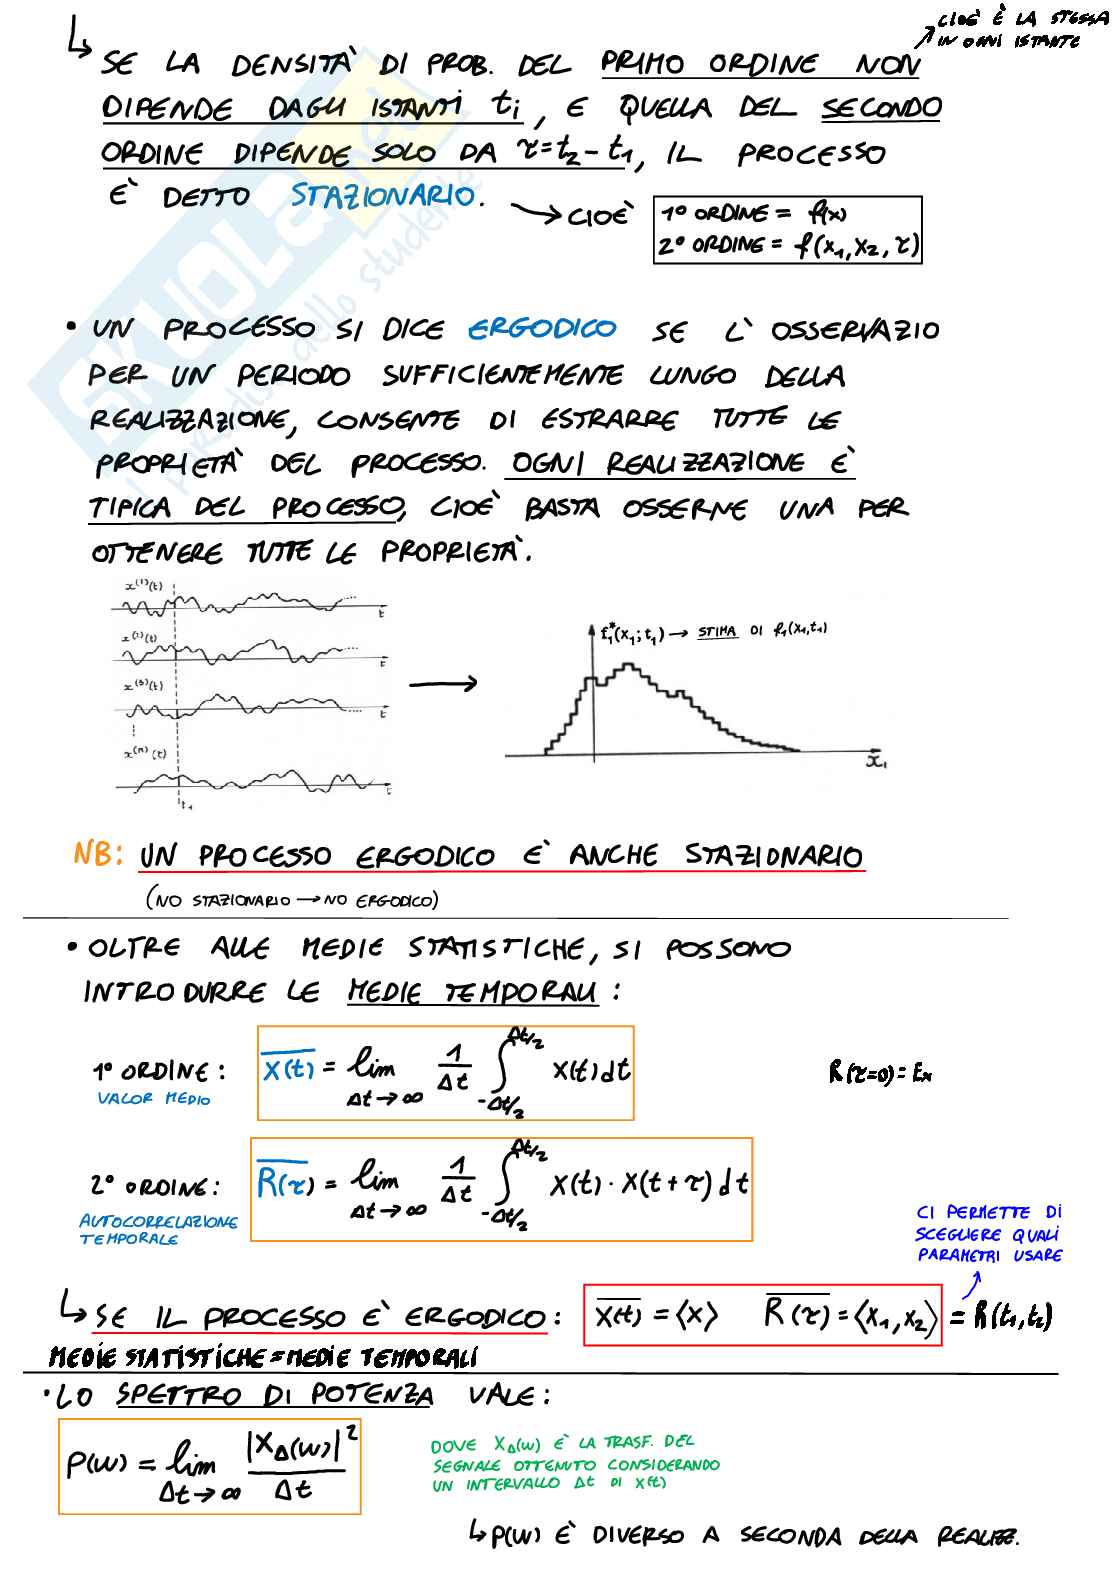 CIOÈ È LA STESSA
IN OGNI ISTANTE
↳ SE LA DENSITÀ DI PROB. DEL PRIMO ORDINE NON
DIPENDE DAGLI ISTANTI ti, E QUELLA DEL SECONDO
ORDINE DIPENDE SOLO DA τ=t2-t1, IL PROCESSO
È DETTO STAZIONARIO. → CIOÈ
1° ORDINE = f(x)
2° ORDINE = f(x1, x2, τ)
• UN PROCESSO SI DICE ERGODICO SE L'OSSERVAZIO
PER UN PERIODO SUFFICIENTEMENTE LUNGO DELLA
REALIZZAZIONE, CONSENTE DI ESTRARRE TUTTE LE
PROPRIETÀ DEL PROCESSO. OGNI REALIZZAZIONE È
TIPICA DEL PROCESSO, CIOÈ BASTA OSSERNE UNA PER
OTTENERE TUTTE LE PROPRIETÀ.
x^(1)(t)
t
x^(2)(t)
t
x^(3)(t)
t
x^(n)(t)
t
t1
f1*(x1; t1) → STIMA DI f1(x1,t1)
x1
NB: UN PROCESSO ERGODICO È ANCHE STAZIONARIO
(NO STAZIONARIO → NO ERGODICO)
• OLTRE ALLE MEDIE STATISTICHE, SI POSSONO
INTRODURRE LE MEDIE TEMPORALI:
1° ORDINE: x(t) = lim Δt→∞ 1/Δt ∫ -Δt/2 Δt/2 x(t) dt
VALOR MEDIO
R(τ=0) = Ex
2° ORDINE: R(τ) = lim Δt→∞ 1/Δt ∫ -Δt/2 Δt/2 x(t) · x(t+τ) dt
AUTOCORRELAZIONE
TEMPORALE
CI PERMETTE DI
SCEGLIERE QUALI
PARAMETRI USARE
↳ SE IL PROCESSO È ERGODICO: x(t) = ⟨x⟩ R(τ) = ⟨x1, x2⟩ = R(t1, t2)
MEDIE STATISTICHE = MEDIE TEMPORALI
• LO SPETTRO DI POTENZA VALE:
P(w) = lim Δt→∞ |XΔ(w)|²/Δt
DOVE XΔ(w) È LA TRASF. DEL
SEGNALE OTTENUTO CONSIDERANDO
UN INTERVALLO Δt DI x(t)
↳ P(w) È DIVERSO A SECONDA DELLA REALIZZ.
SKUOLA.net
il paradiso dello studente